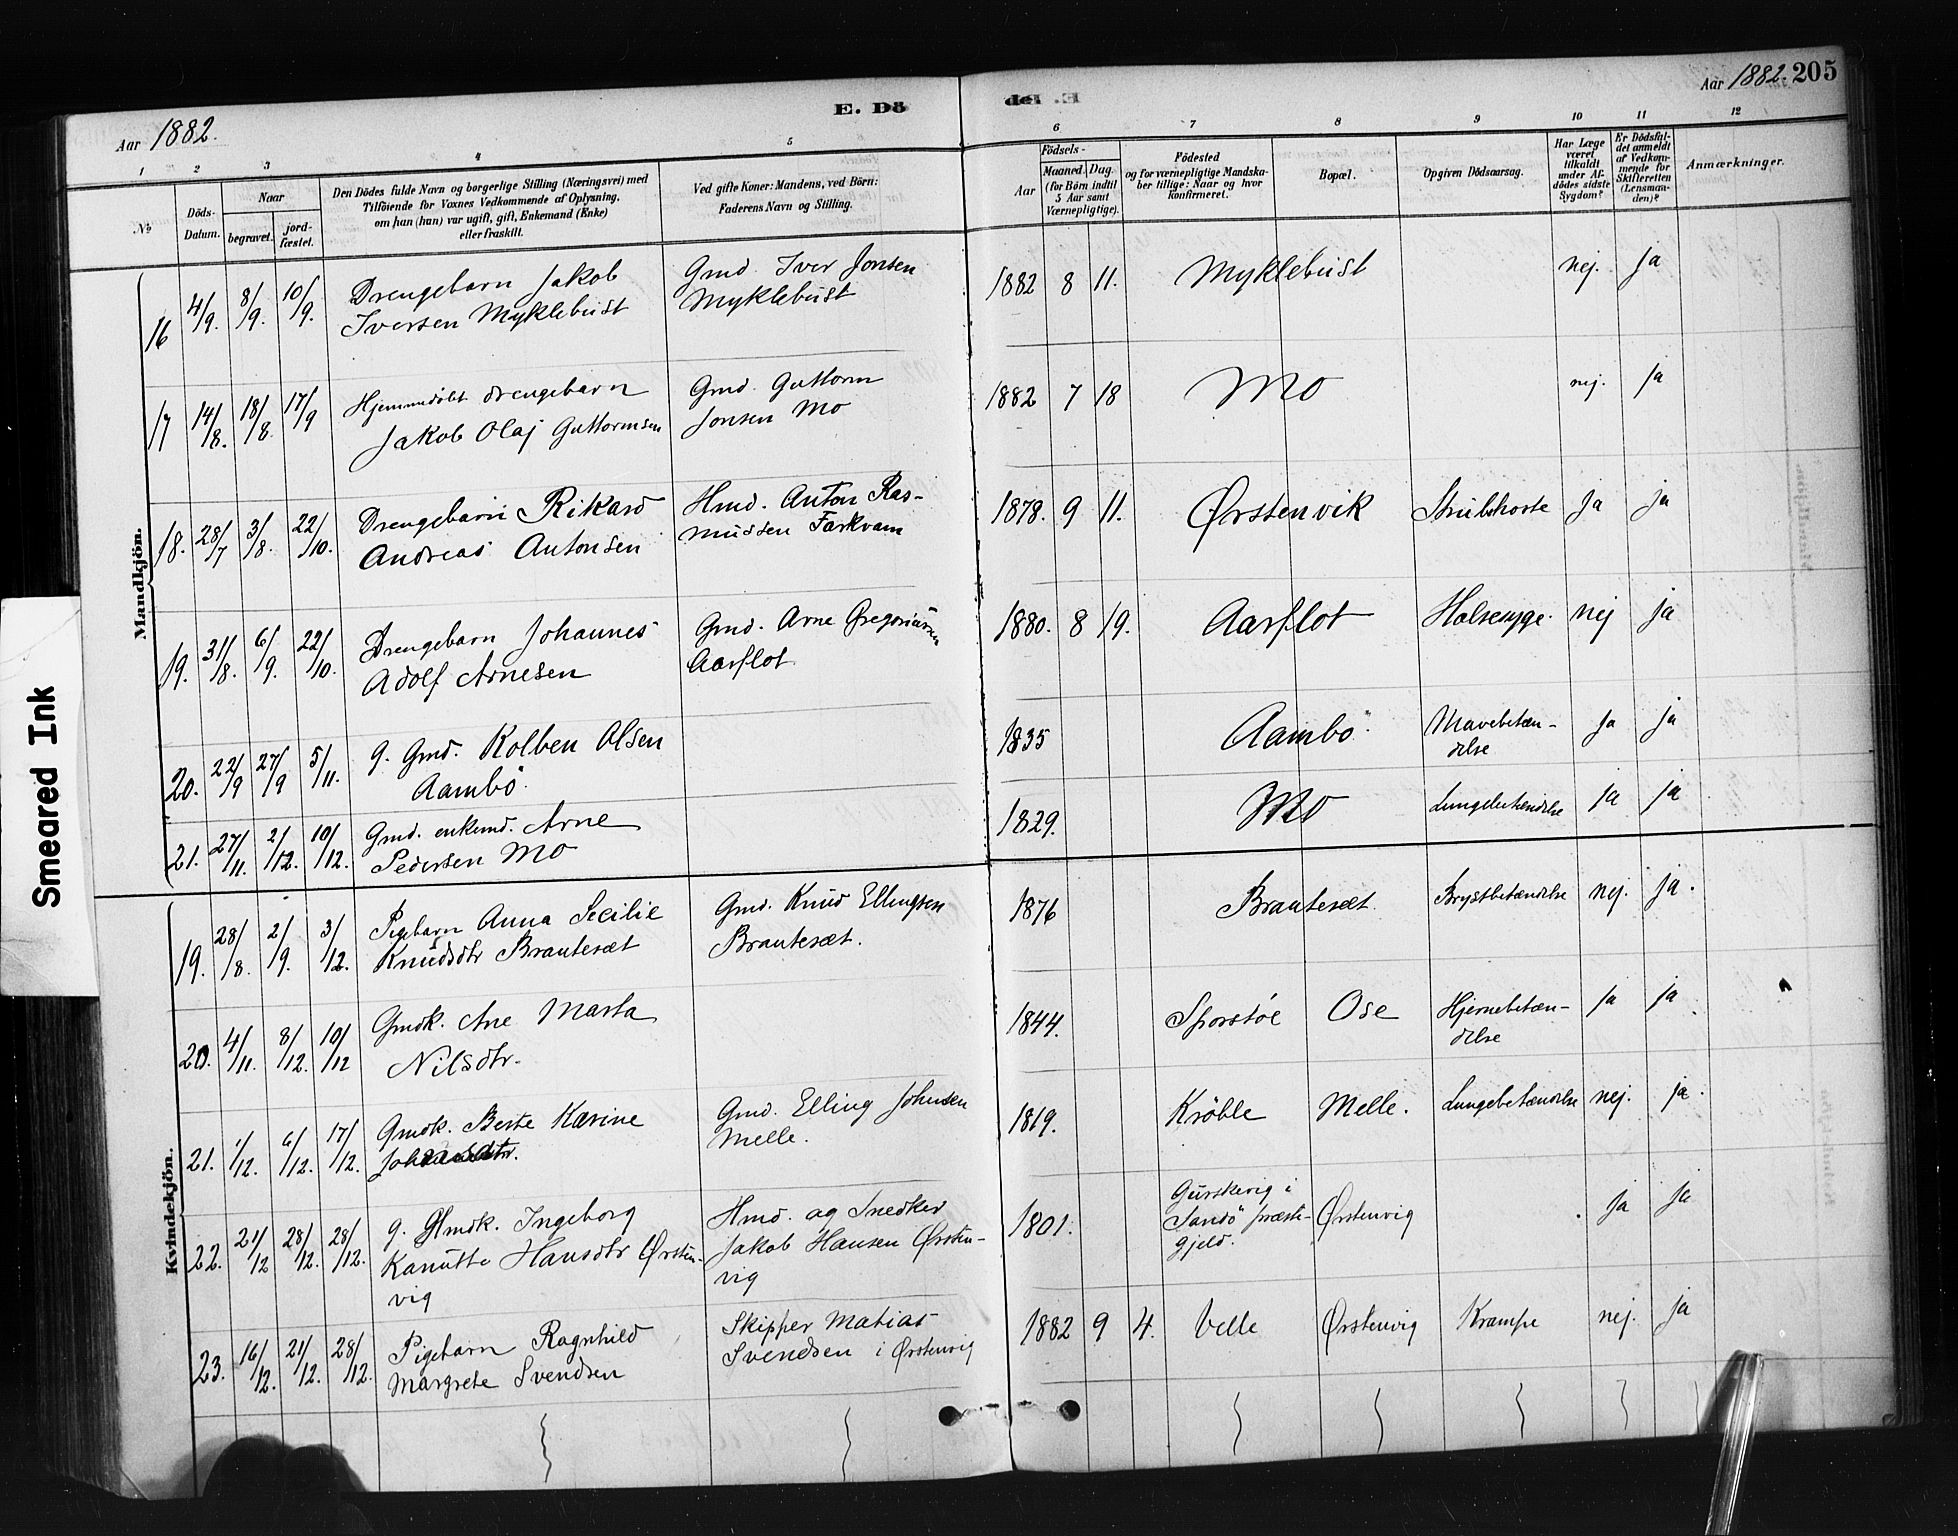 Aar 1882.
E. Dö
de! .E
Aar 1882. 205
1 2 3 4 5 6 7 8 9 10 11 12
No
Döds-
Datum.
Naar
begravet.
jord-
fæstet.
Den Dödes fulde Navn og borgerlige Stilling (Næringsvei) med
Tilföiende for Voxnes Vedkommende af Oplysning,
om han (hun) var ugift, gift, Enkemand (Enke)
eller fraskilt.
Ved gifte Koner: Mandens, ved Börn:
Faderens Navn og Stilling.
Födsels-
Aar
Maaned. Dag.
(for Börn indtil
5 Aar samt
Værnepligtige).
Födested
og for værnepligtige Mandska-
ber tillige: Naar og hvor
konfirmeret.
Bopæl.
Opgiven Dödsaarsag.
Har Læge
været
tilkaldt
under Af-
dödes sidste
Sygdom?
Er Dödsfal-
det anmeldt
af Vedkom-
mende for
Skifteretten
(Lensman-
den)?
Anmærkninger.
Mandkjön.
16 4/9. 8/9. 10/9. Drengebarn Jakob
Iversen Myklebust
Gmd. Iver Jonsen
Myklebust
1882 8 11. Myklebust nej. Ja
17 14/8. 18/8. 17/9 Hjemmedøbt drengebarn
Jakob Olaj Guttormsen
Gmd. Guttorm
Jonsen Mo
1882 7 18 Mo nej. Ja
18. 28/7 3/8. 22/10. Drengebarn Rikard
Andreas Antonsen
Hmd. Anton Ras-
mussen Farkvam
1878. 9 11. Ørstenvik Strubehoste Ja Ja
19. 31/8. 6/9. 22/10. Drengebarn Johannes
Adolf Arnesen
Gmd. Arne Gregoriusen
Aarflot
1880. 8 19. Aarflot Halsesyge. nej Ja
20. 22/9 27/9 5/11. g. Gmd. Kolben Olsen
Aambö
1835 Aambö Mavebetæn-
delse Ja Ja
21. 27/11. 2/12. 10/12. Gmd. enkemd. Arne
Pedersen Mo
1829. Mo Lungebetændelse Ja Ja
Kvindekjön.
19. 28/8. 2/9. 3/12. Pigebarn Anna Secilie
Knudsdtr Brautesæt
Gmd. Knud Ellingsen
Brautesæt.
1876 Brautesæt. Brystbetændelse nej. ja.
20. 4/11. 8/12. 10/12 Gmdk. Ane Marta
Nilsdtr.
1844. Sporstöe Ose Hjernebetæn-
delse Ja Ja
21. 1/12. 6/12. 17/12. Gmdk. Berte Karine
Gmd. Elling Johnsen
Melle.
1819. Kröble Melle. Lungebetændelse nej. ja.
22. 21/12 28/12. 28/12. g. Hmdk. Ingeborg
Kanutte Hansdtr Ørsten-
vig
Hmd. og Snedker
Jakob Hansen Ørsten-
vig
1801. Gurskevig i
Sandö præste-
gjeld. Ørstenvig Ja Ja
23. 16/12. 21/12. 28/12. Pigebarn Ragnhild
Margrete Svendsen
Skipper Matias
Svendsen i Ørstenvig
1882 9 4. Velle Ørstenvig Krampe nej. Ja
Smeared Ink